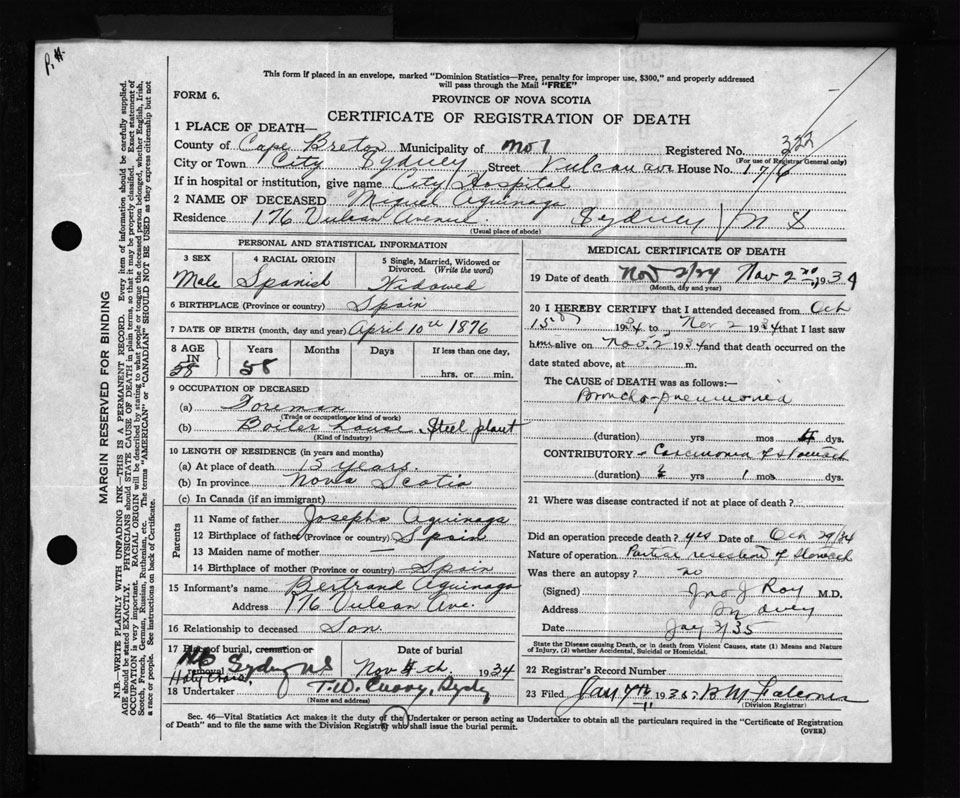 P. H.
This form if placed in an envelope, marked "Dominion Statistics—Free, penalty for improper use, $300," and properly addressed
will pass through the Mail "FREE"
FORM 6.
PROVINCE OF NOVA SCOTIA
CERTIFICATE OF REGISTRATION OF DEATH
1 PLACE OF DEATH—
County of Cape Breton Municipality of No 1 Registered No. 322
(For use of Registrar General only)
City or Town City Sydney Street Vulcan ave House No. 176
If in hospital or institution, give name City Hospital
2 NAME OF DECEASED Miguel Aguinaga
Residence 176 Vulcan Avenue. Sydney N S
(Usual place of abode)
PERSONAL AND STATISTICAL INFORMATION
3 SEX
Male
4 RACIAL ORIGIN
Spanish
5 Single, Married, Widowed or
Divorced. (Write the word)
Widowed
6 BIRTHPLACE (Province or country) Spain
7 DATE OF BIRTH (month, day and year) April 10th 1876
8 AGE IN
58
Years
58
Months
Days
If less than one day,
hrs. or min.
9 OCCUPATION OF DECEASED
(a) Foreman
(Trade or occupation or kind of work)
(b) Boiler house, Steel plant
(Kind of industry)
10 LENGTH OF RESIDENCE (in years and months)
(a) At place of death 15 Years.
(b) In province Nova Scotia
(c) In Canada (if an immigrant)
Parents
11 Name of father Josepho Aguinaga
12 Birthplace of father (Province or country) Spain
13 Maiden name of mother —
14 Birthplace of mother (Province or country) Spain
15 Informant's name Bertrand Aguinaga
Address 176 Vulcan Ave.
16 Relationship to deceased Son.
17 Place of burial, cremation or
removal Sydney NS Nov 4th. 1934
Holy Cross
18 Undertaker T.W. Curry, Sydney
(Name and address)
MEDICAL CERTIFICATE OF DEATH
19 Date of death Nov 2/34 Nov 2nd, 1934
(Month, day and year)
20 I HEREBY CERTIFY that I attended deceased from Oct
15th 1934 to Nov 2 1934 that I last saw
him alive on Nov. 2 1934 and that death occurred on the
date stated above, at m.
The CAUSE of DEATH was as follows:—
Broncho-pneumonia
(duration) yrs mos 4 dys.
CONTRIBUTORY Carcinoma of stomach
(duration) yrs 1 mos dys.
21 Where was disease contracted if not at place of death?
Did an operation precede death? yes Date of Oct 29/34
Nature of operation Partial resection of stomach
Was there an autopsy? no
(Signed) Jno J Roy M.D.
Address Sydney
Date Jan 3/35
State the Disease causing Death, or in death from Violent Causes, state (1) Means and Nature
of Injury, (2) whether Accidental, Suicidal or Homicidal.
22 Registrar's Record Number
23 Filed Jan 4th 1935 B M
(Division Registrar)
Sec. 46—Vital Statistics Act makes it the duty of the Undertaker or person acting as Undertaker to obtain all the particulars required in the "Certificate of Registration
of Death" and to file the same with the Division Registrar who shall issue the burial permit.
(OVER)
MARGIN RESERVED FOR BINDING
N.B.—WRITE PLAINLY WITH UNFADING INK—THIS IS A PERMANENT RECORD. Every item of information should be carefully supplied.
AGE should be stated EXACTLY. PHYSICIANS should STATE CAUSE OF DEATH in plain terms, so that it may be properly classified. Exact statement of
OCCUPATION is very important. RACIAL ORIGIN will be described by stating to what people or tongue the deceased person belonged, whether English, Irish,
Scotch, French, German, Russian, Ruthenian, etc. The terms "AMERICAN" or "CANADIAN" SHOULD NOT BE USED as they express citizenship but not
a race or people. See instructions on back of Certificate.